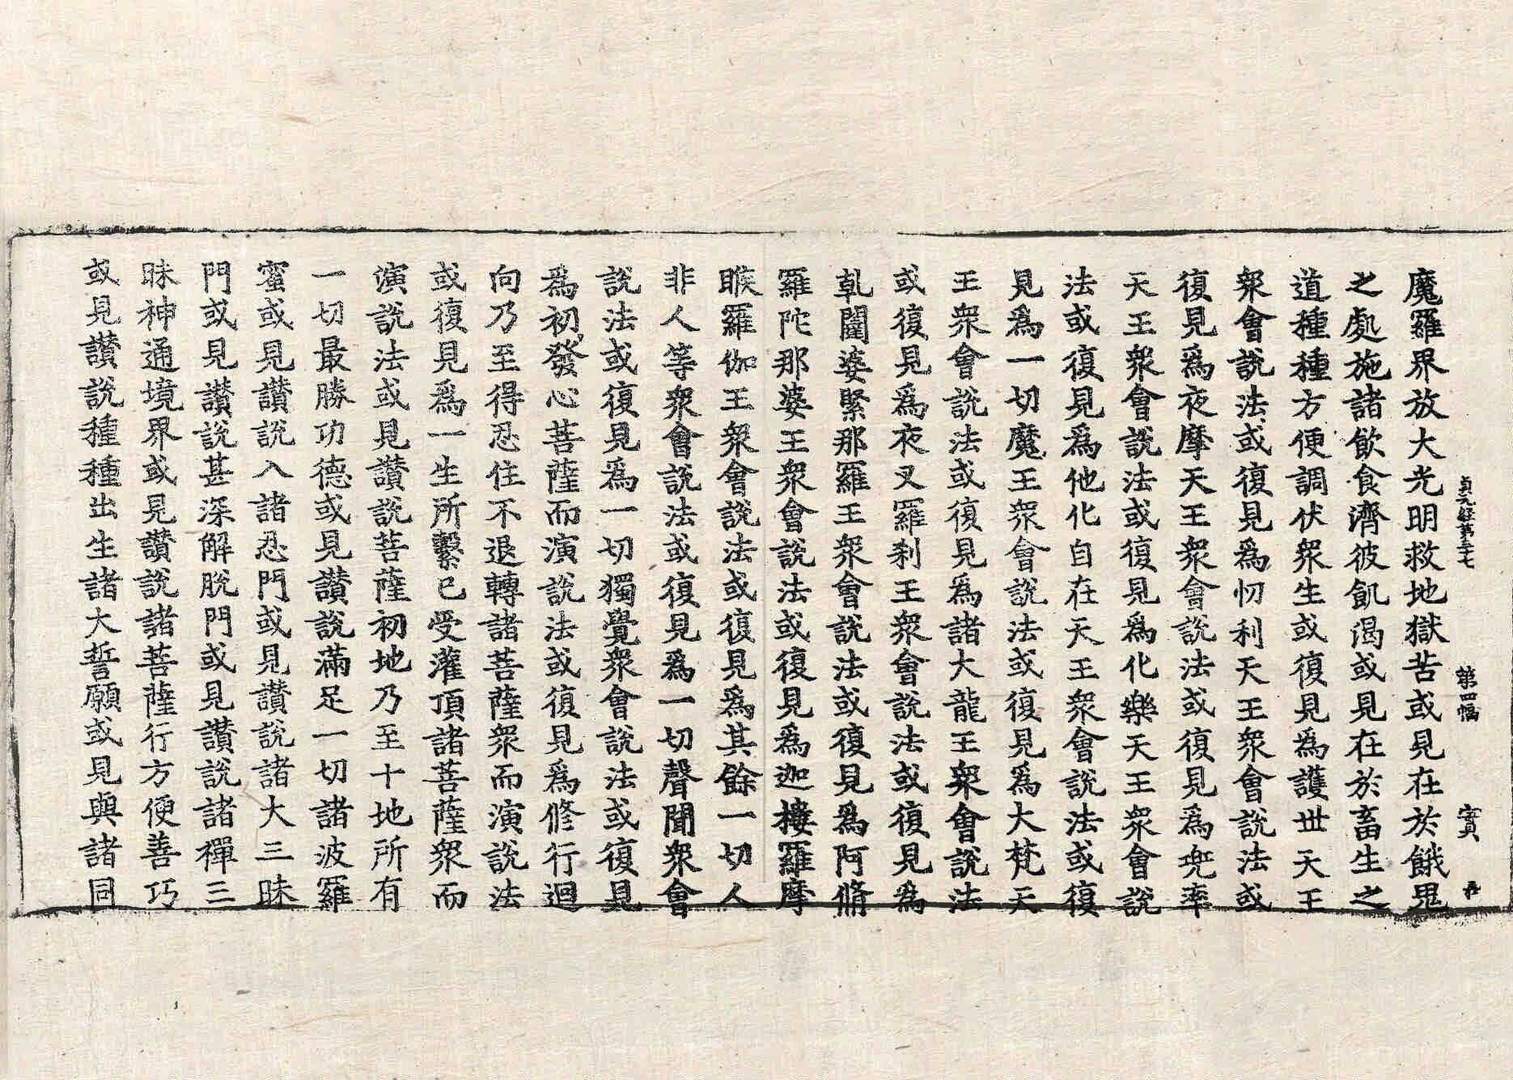 貞元經第三十七 第四幅 實
魔羅界放大光明救地獄苦或見在於餓鬼
之處施諸飲食濟彼飢渴或見在於畜生之
道種種方便調伏衆生或復見爲護世天王
衆會說法或復見爲忉利天王衆會說法或
復見爲夜摩天王衆會說法或復見爲兜率
天王衆會說法或復見爲化樂天王衆會說
法或復見爲他化自在天王衆會說法或復
見爲一切魔王衆會說法或復見爲大梵天
王衆會說法或復見爲諸大龍王衆會說法
或復見爲夜叉羅刹王衆會說法或復見爲
乹闥婆緊那羅王衆會說法或復見爲阿脩
羅陀那婆王衆會說法或復見爲迦樓羅摩
睺羅伽王衆會說法或復見爲其餘一切人
非人等衆會說法或復見爲一切聲聞衆會
說法或復見爲一切獨覺衆會說法或復見
爲初發心菩薩而演說法或復見爲修行迴
向乃至得忍住不退轉諸菩薩衆而演說法
或復見爲一生所繫已受灌頂諸菩薩衆而
演說法或見讃說菩薩初地乃至十地所有
一切最勝功德或見讃說滿足一切諸波羅
蜜或見讃說入諸忍門或見讃說諸大三昧
門或見讃說甚深解脫門或見讃說諸禪三
昧神通境界或見讃說諸菩薩行方便善巧
或見讃說種種出生諸大誓願或見與諸同